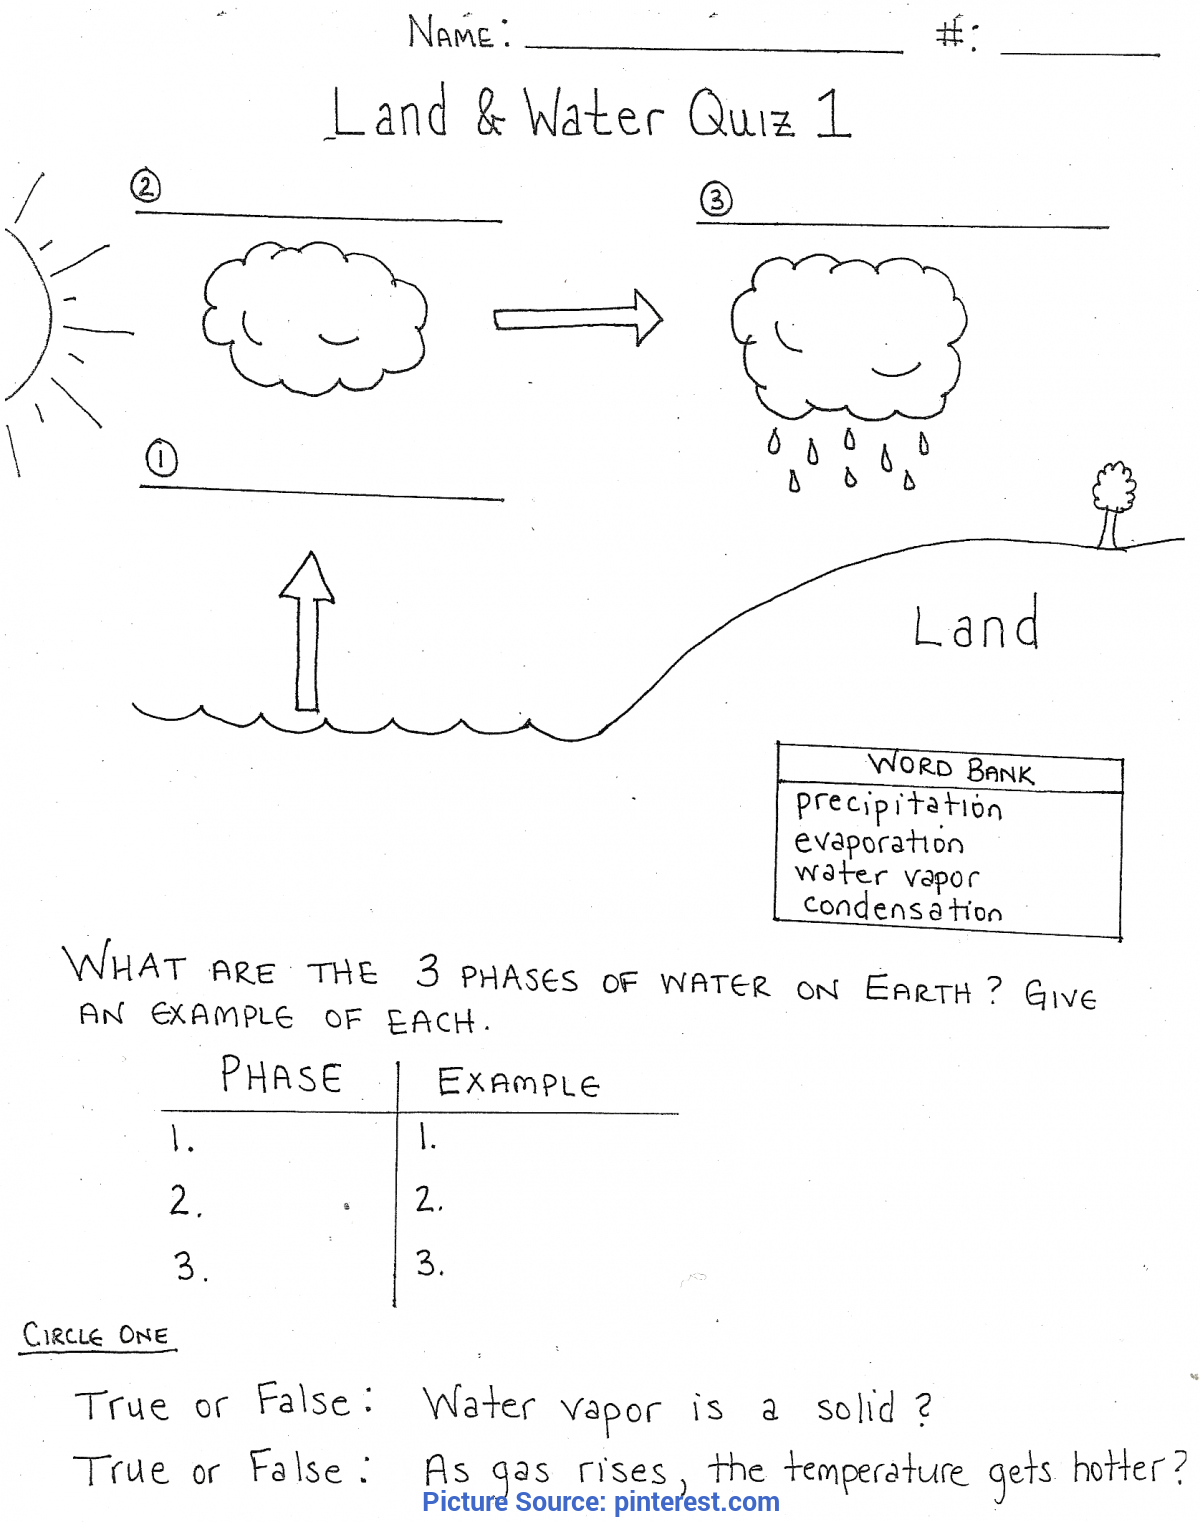 NAME: #:
Land & Water Quiz 1
② ③
①
Land
WORD BANK
precipitation
evaporation
water vapor
condensation
WHAT ARE THE 3 PHASES OF WATER ON EARTH? GIVE
AN EXAMPLE OF EACH.
PHASE EXAMPLE
1. 1.
2. 2.
3. 3.
CIRCLE ONE
True or False: Water vapor is a solid?
True or False: As gas rises, the temperature gets hotter?
Picture Source: pinterest.com